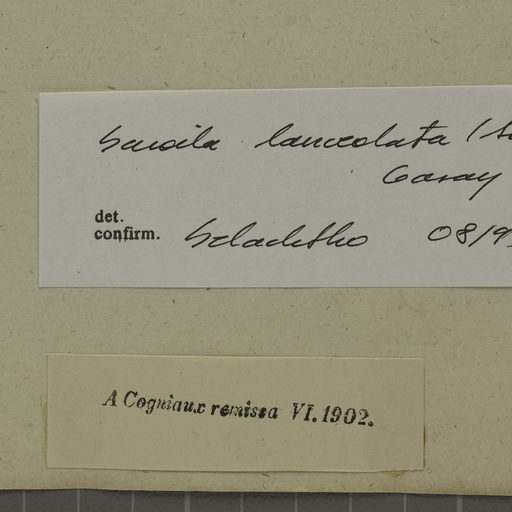 lanceolata
Garay
det.
confirm. Szlachetko 08/9
A Cogniaux remissa VI. 1902.